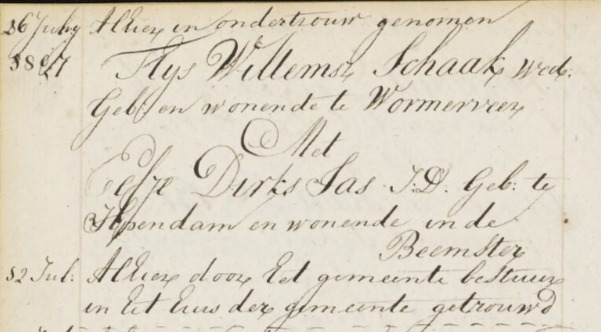 26 Juny Alhier in ondertrouw genomen
1807 Thys Willemsz Schaak, wed:
Geb: en wonende te Wormerveer
Met
Eefje Dirks Jas J:D. Geb: te
Ilpendam en wonende in de
Beemster
12 Jul: Alhier door het gemeente bestuur
in het huis der gemeente getrouwd